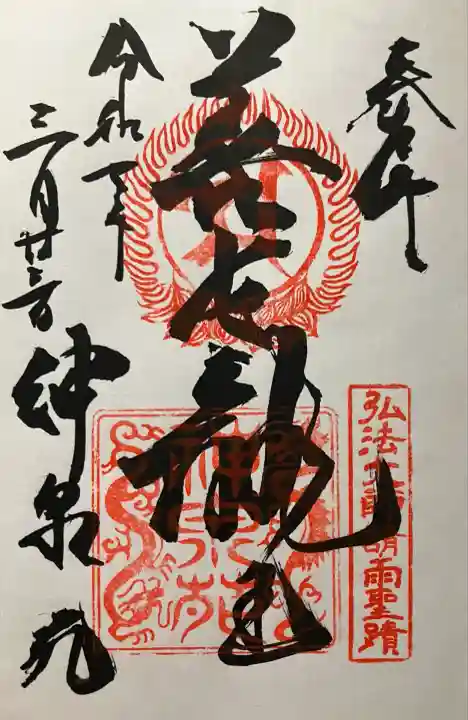 奉拝
弘法大師請雨聖蹟
善女龍王
神泉苑
令和
三月廿三日
神泉苑